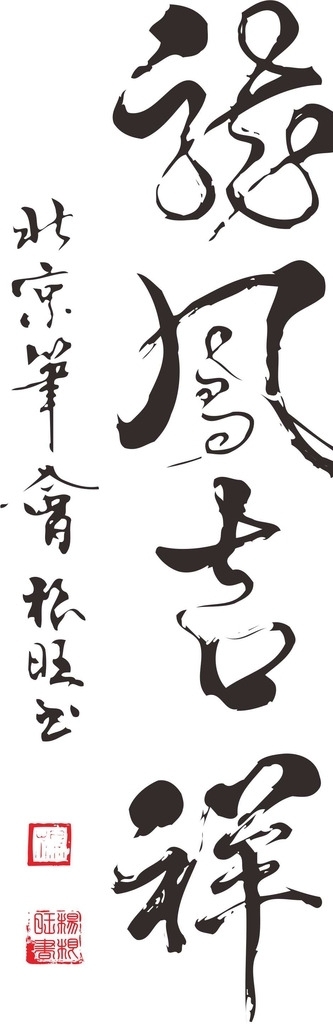 龍鳳吉祥
北京筆會根旺书
楊根
旺書